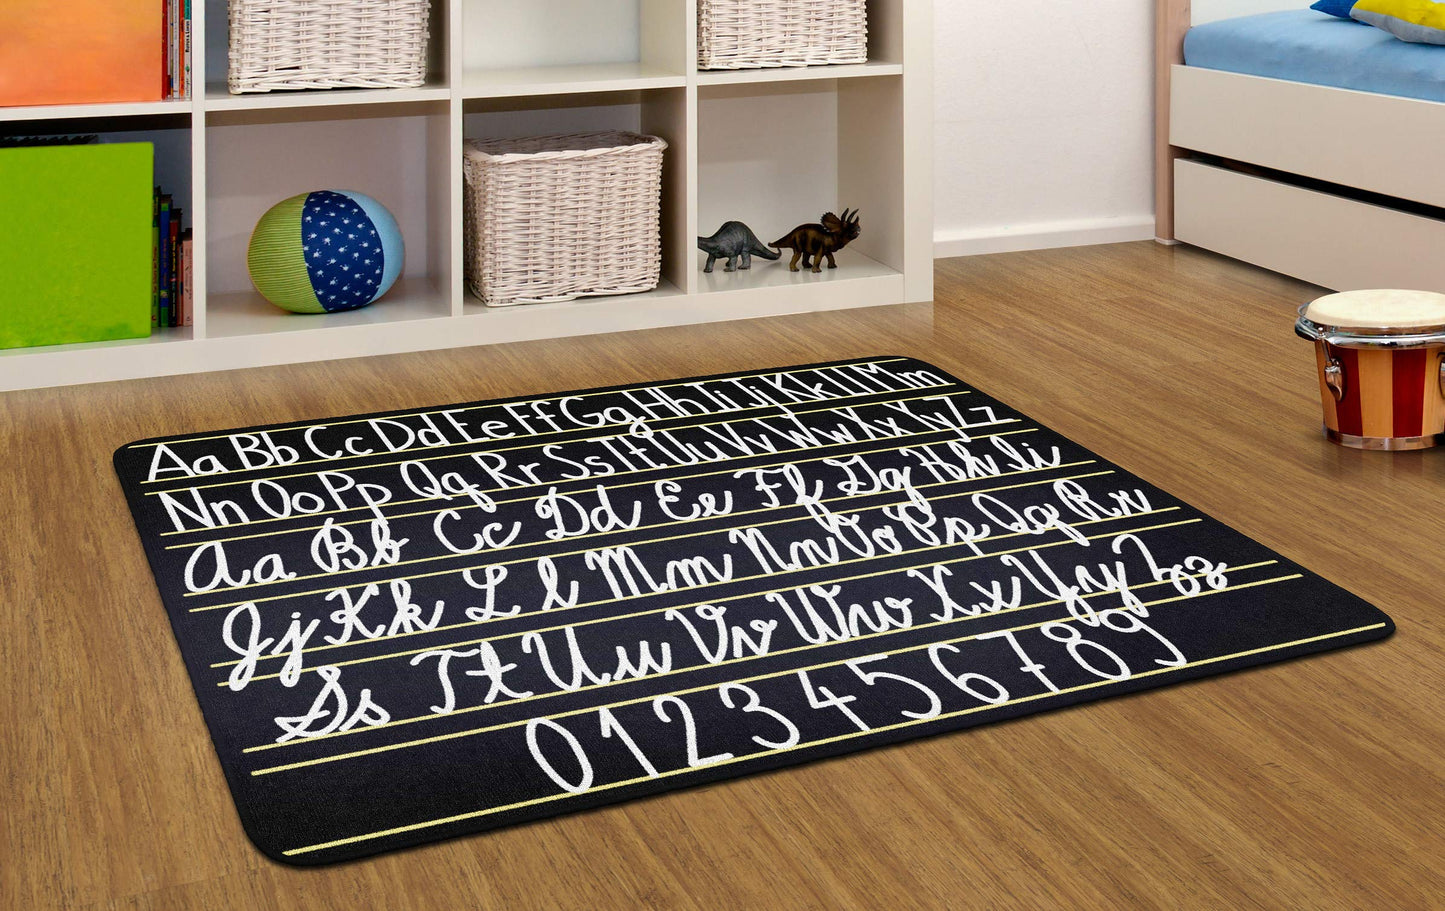 Aa Bb Cc Dd Ee Ff Gg Hh Ii Jj Kk Ll Mm
Nn Oo Pp Qq Rr Ss Tt Uu Vv Ww Xx Yy Zz
Aa Bb Cc Dd Ee Ff Gg Hh Ii
Jj Kk Ll Mm Nn Oo Pp Qq Rr
Ss Tt Uu Vv Ww Xx Yy Zz
0 1 2 3 4 5 6 7 8 9